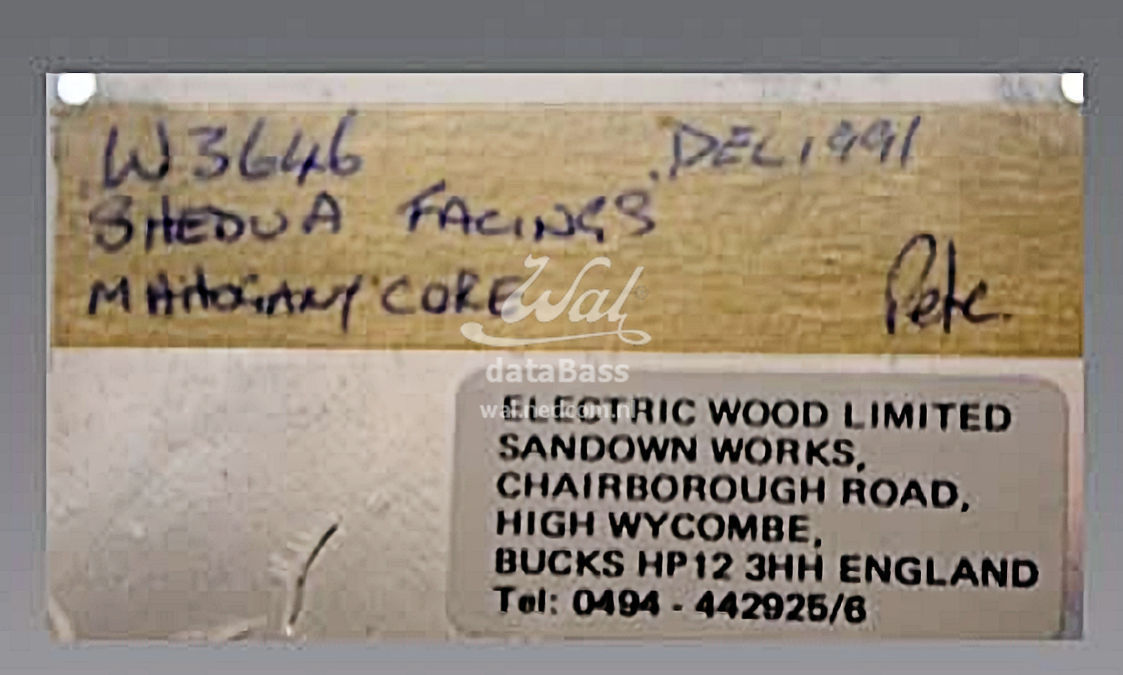 W3646 DEC 1991
SHEDUA FACINGS
MAHOGANY CORE
Pete
Wal
dataBass
wal.nedcom.nl
ELECTRIC WOOD LIMITED
SANDOWN WORKS,
CHAIRBOROUGH ROAD,
HIGH WYCOMBE,
BUCKS HP12 3HH ENGLAND
Tel: 0494 - 442925/6